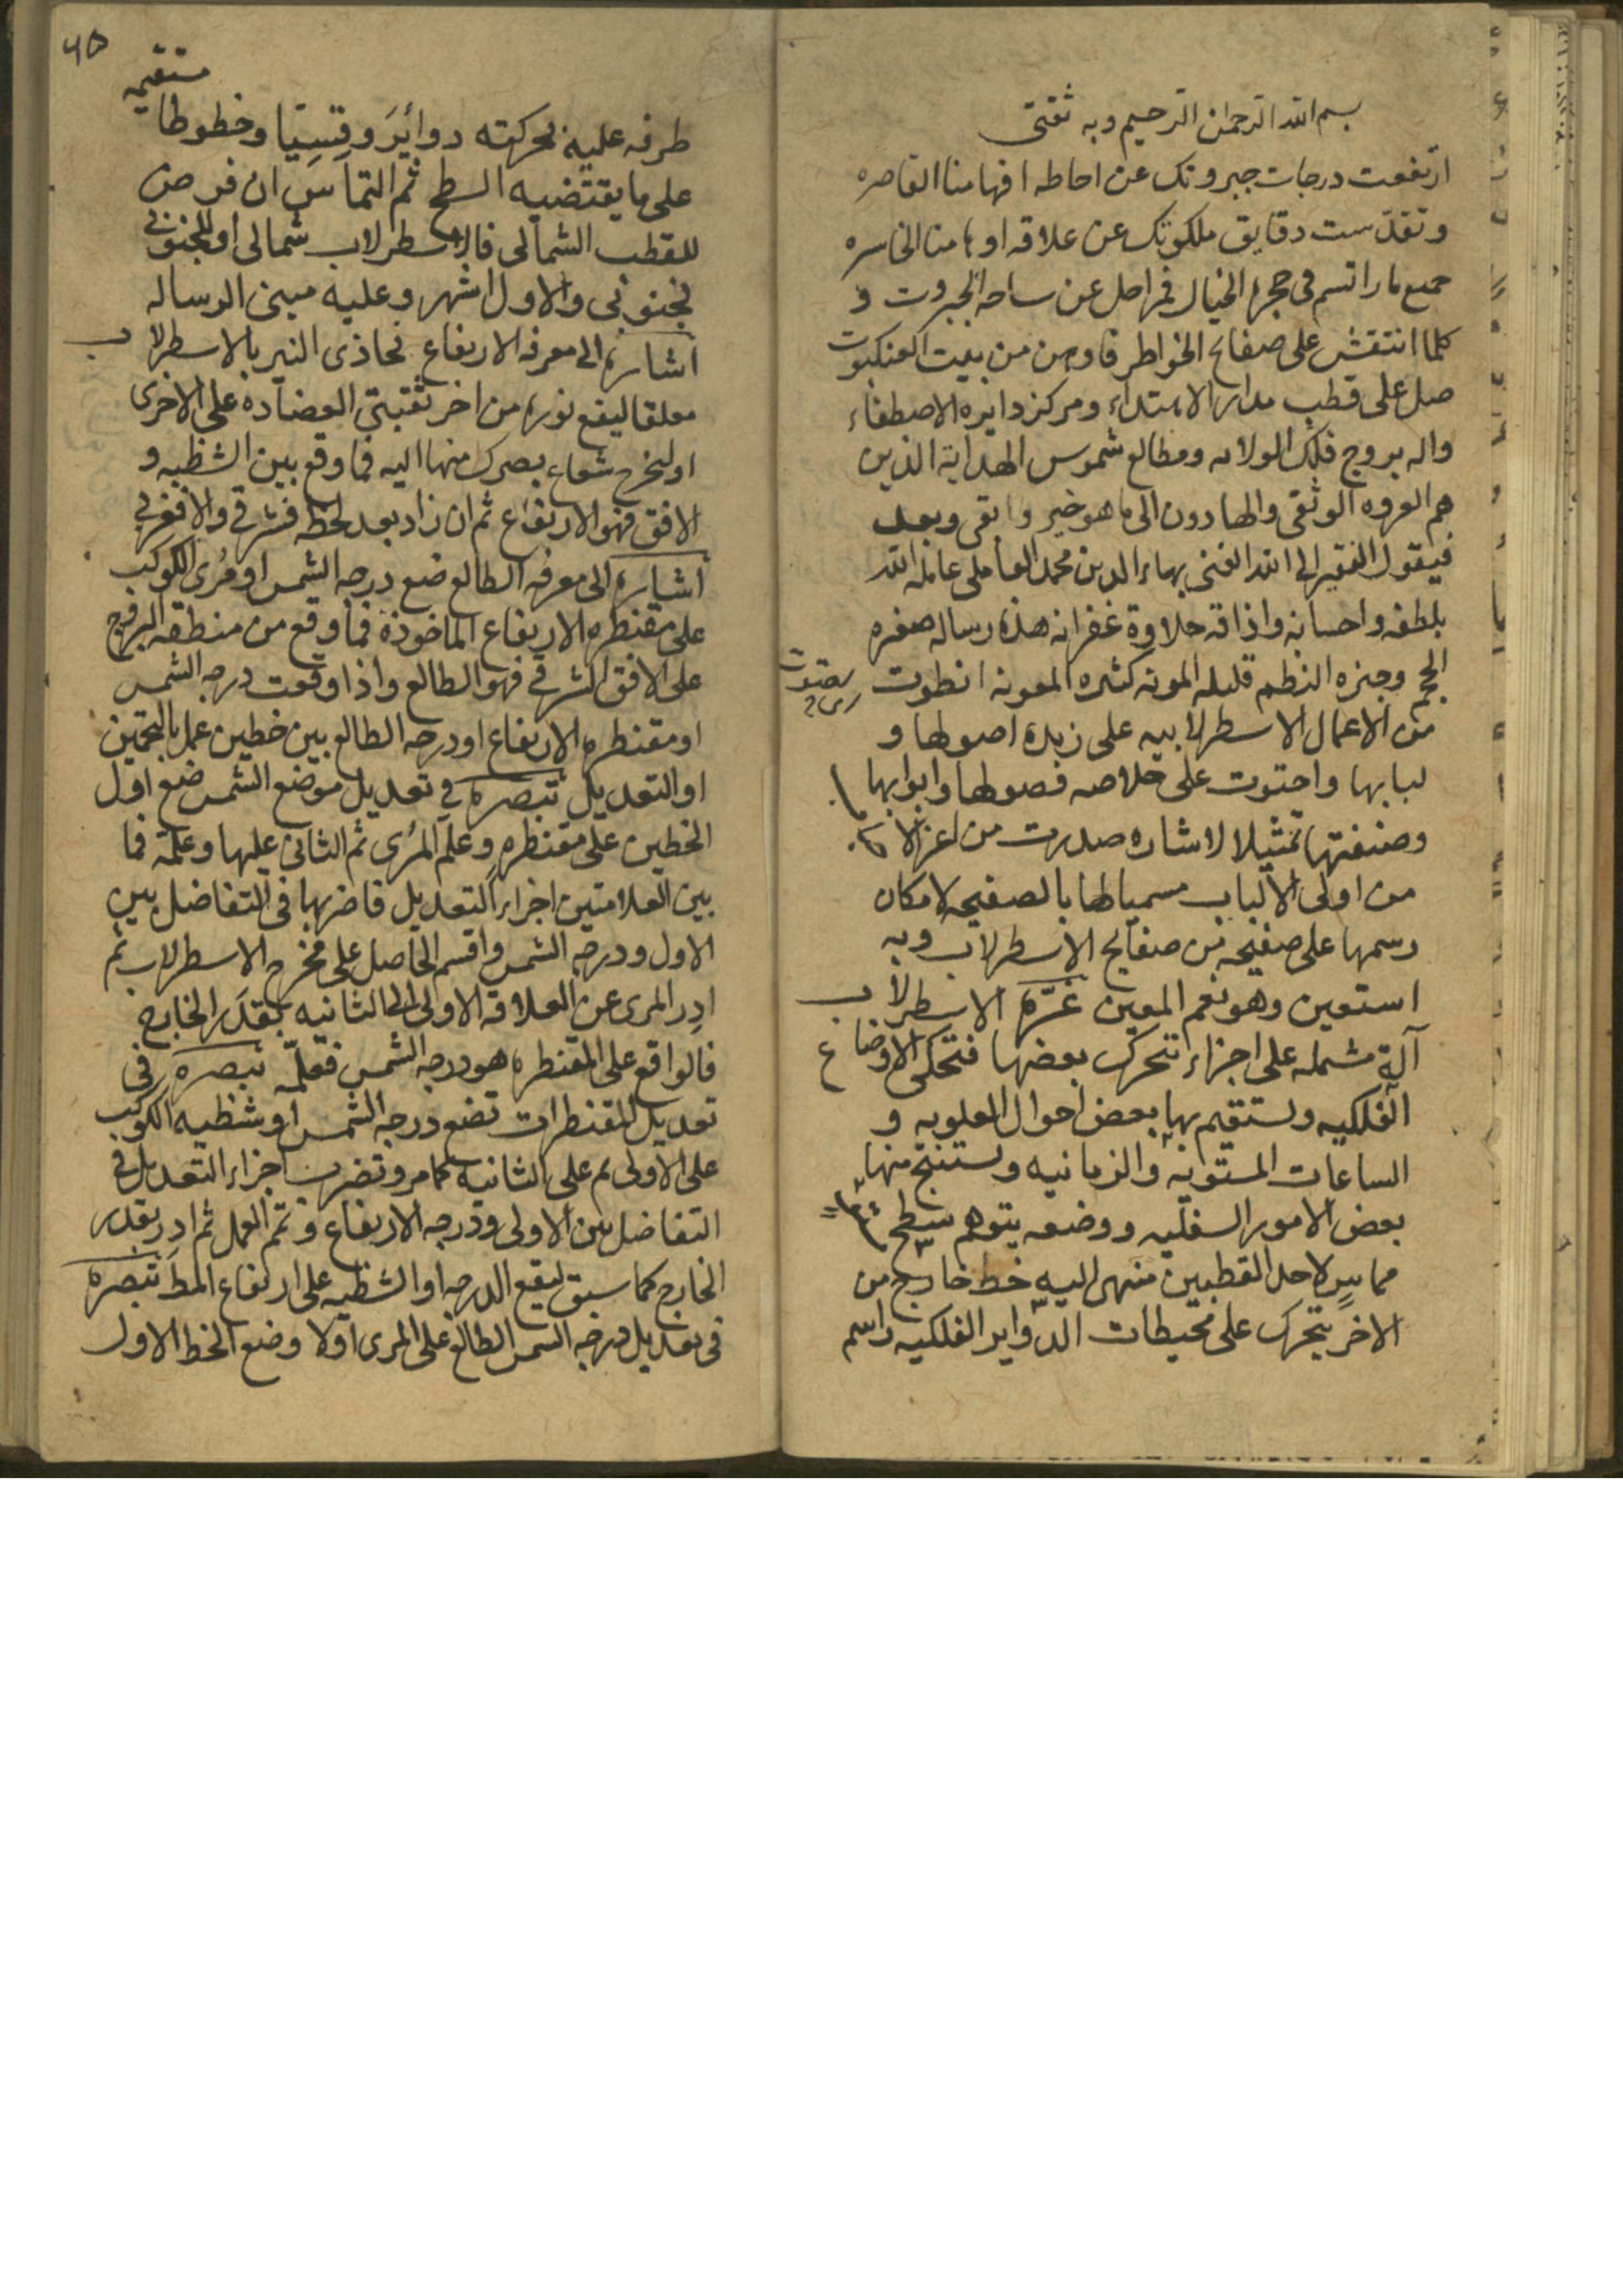 بسم الله الرحمن الرحيم وبه ثقتى
ارتفعت درجات جبروتك عن احاطه افهامنا القاصره
وتقدّست دقايق ملكوتك عن علاقه اوهامنا الخاسره
جميع ما راتسم فى حجرة الخيال فمراحل عن ساحه الجبروت و
كلما انتقش على صفايح الخواطر فاوهن من بيت العنكبوت
صل على قطب مدار الابتداء ومركز دايره الاصطفاء
واله بروج فلك الولاىه ومطالع شموس الهداية الذين
هم العروه الوثقى والهادون الى ما هو خير وابقى وبعد
فيقول الفقير الى الله الغنى بهاء الدين محمد العاملى عامله الله
بلطفه واحسانه واذاقه حلاوة غفرانه هذه رساله صغيره
الحجم وجيزه النظم قليله المونه كثيره المعونه انطوت
من الاعمال الاسطرلابيه على زبدة اصولها و
لبابها واحتوت على خلاصه فصولها وابوابها
وصنفتها تمثيلا لاشاره صدرت من اعز الا
من اولى الالباب مسميا لها بالصفيحه لامكان
رسمها على صفيحه من صفايح الاسطرلاب وبه
استعين وهو نعم المعين غرّة الاسطرلاب
آلة مشمله على اجزاء تتحرك بعضها فتحكى الاوضاع
الفلكيه وستقيم بها بعض احوال العلويه و
الساعات المستويه والزمانيه وستنتج منها
بعض الامور السفليه ووضعه بتوهم سطح
مماسٍ لاحد القطبين منتهى اليه خط خارج من
الاخر يتحرك على محيطات الدواير الفلكيه راسم
٦٥
مستقيمه
طرفه عليه بحركته دوائرَ وقِسيّا وخطوطا
على ما يقتضيه السطح ثم التماسّ ان فرض
للقطب الشمالى فالاسطرلاب شمالى او للجنوبى
فجنوبى والاول اشهر وعليه مبنى الرساله
اشارة الى معرفه الارتفاع تحاذى النير بالاسطرلاب
معلقا ليقع نوره من اخر ثقبتى العضاده على الاخرى
او ليخرج شعاع بصرك منها اليه فما وقع بين الشظيه و
الافق فهو الارتفاع ثم ان زاد بعد لحظه فشرقى والا فغربى
اشارة الى معرفه الطالع ضع درجه الشمس او مُرى الكوكب
على مقنطره الارتفاع الماخوذة فما وقع من منطقه البروج
على الافق الشرقى فهو الطالع واذا وقعت درجه الشمس
او مقنطره الارتفاع او درجه الطالع بين خطين عمل بالتخمين
او التعديل تبصرة فى تعديل موضع الشمس ضع اول
الخطين على مقنطرهٍ وعلّم المُرى ثم الثانى عليها وعلّمه فما
بين العلامتين اجزاء التعديل فاضربها فى التفاضل بين
الاول ودرجه الشمس واقسم الحاصل على مخرج الاسطرلاب ثم
ادِر المرى عن العلاقه الاولى الى الثانيه بقدَر الخارج
فالواقع على المقنطره هو درجه الشمس فعلّمه تبصرة فى
تعديل المقنطرات تضع درجه الشمس او شظيه الكوكب
على الاولى ثم على الثانيه كما مر وتضرب اجزاء التعديل فى
التفاضل بين الاولى ودرجه الارتفاع وتتم العمل ثم ادِر بقدر
الخارج كما سبق ليقع الدرجه او الشظيه على ارتفاع المط تبصرة
فى تعديل درجه الشمس الطالع على المرى اوّلا وضع الخط الاول